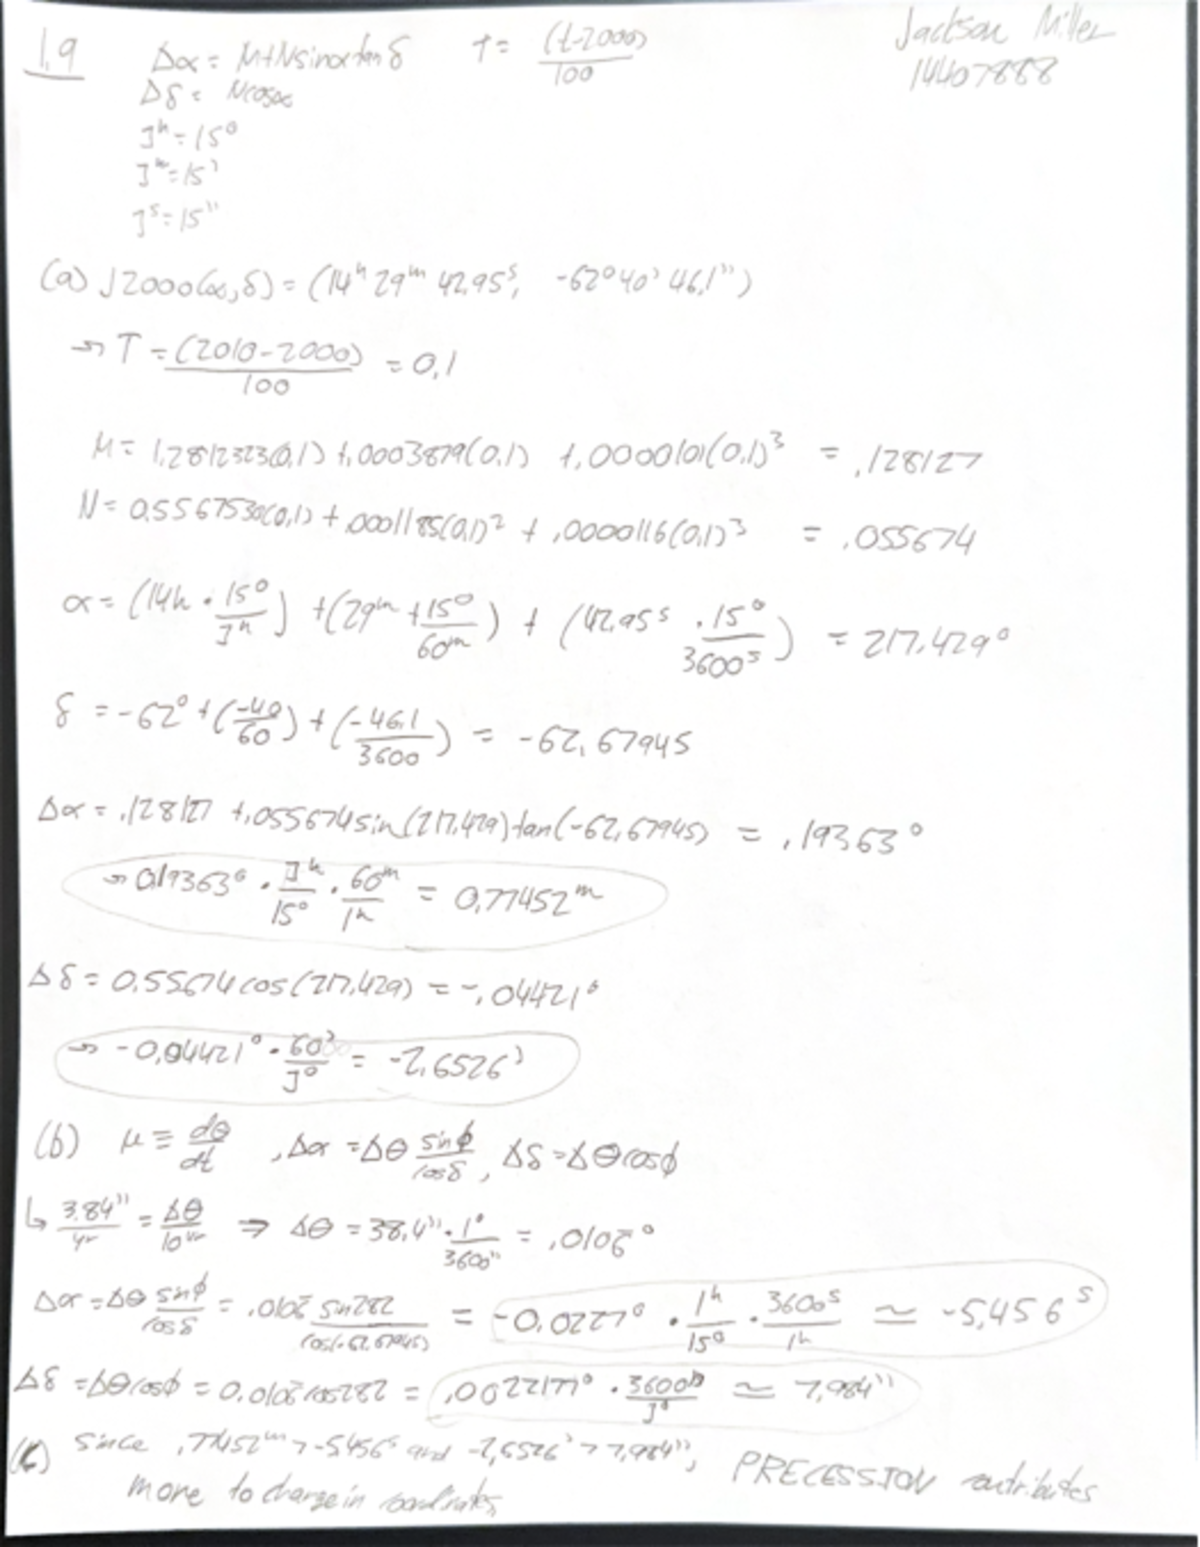 1.9
Δα = M+Nsinαtan δ
T = (t-2000)/100
Jackson Miller
14407888
Δδ = Ncosα
1ʰ = 15°
1ᵐ = 15'
1ˢ = 15''
(a) J2000(α,δ) = (14ʰ 29ᵐ 42.95ˢ, -62° 40' 46.1'')
↪ T = (2010-2000)/100 = 0.1
M = 1.2812323(0.1) + .0003879(0.1) + .0000101(0.1)³ = .128127
N = 0.5567530(0.1) + .0001185(0.1)² + .0000116(0.1)³ = .055674
α = (14h · 15°/1ʰ) + (29ᵐ + 15°/60ᵐ) + (42.95ˢ · 15°/3600ˢ) = 217.429°
δ = -62° + (-40/60) + (-46.1/3600) = -62.67945
Δα = .128127 + .055674sin(217.429)tan(-62.67945) = .19363°
↪ 0.19363° · 1ʰ/15° · 60ᵐ/1ʰ = 0.77452ᵐ
Δδ = 0.55674cos(217.429) = -.04421°
↪ -0.04421° · 60'/1° = -2.6526'
(b) μ ≡ dθ/dt , Δα = Δθ sinϕ/cosδ, Δδ = Δθcosϕ
↳ 3.84''/yr = Δθ/10yr ⇒ Δθ = 38.4'' · 1°/3600'' = .0106̄°
Δα = Δθ sinϕ/cosδ = .0106̄ sin282/cos(-62.67945) = -0.0227° · 1ʰ/15° · 3600ˢ/1ʰ ≃ -5.456ˢ
Δδ = Δθcosϕ = 0.0106̄cos282 = .0022177° · 3600''/1° ≃ 7.984''
(c) Since .77452ᵐ > -5.456ˢ and -2.6526' > 7.984'', PRECESSION contributes
more to change in coordinates